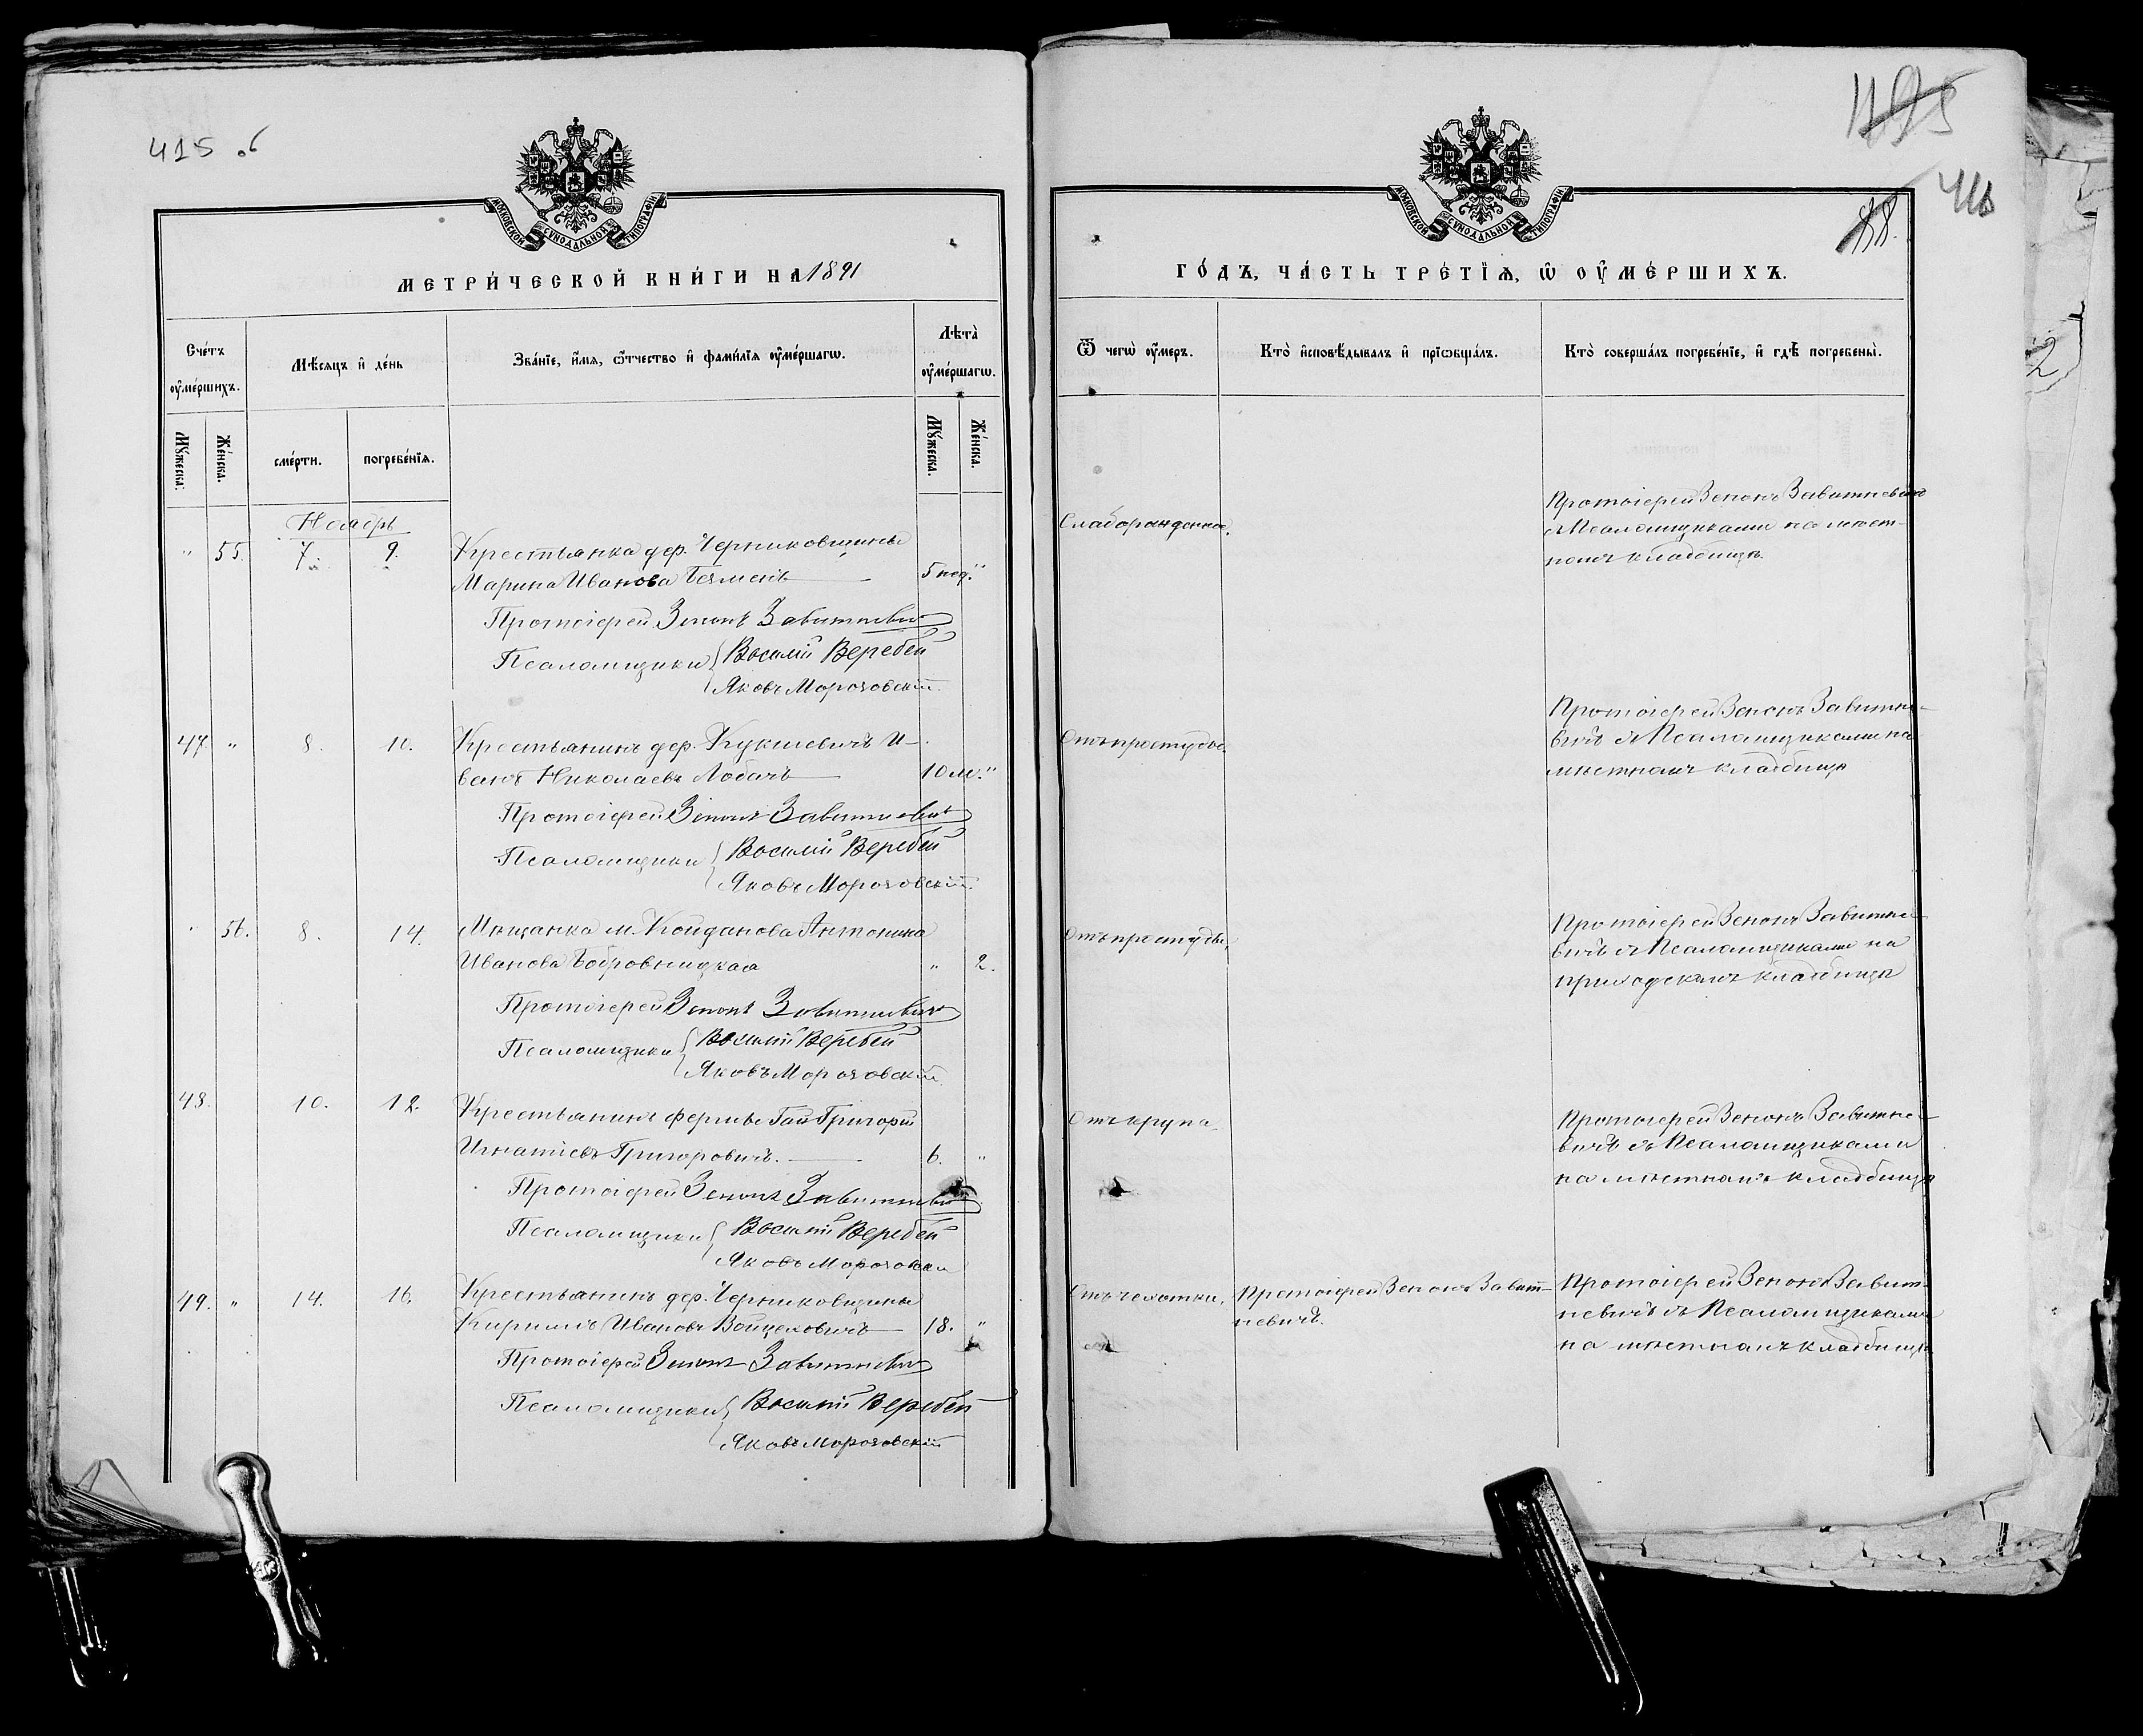 415 об
МОСКОВСКОЙ СѴНОДАЛЬНОЙ ТИПОГРАФІИ
МЕТРИ́ЧЕСКОЙ КНИ́ГИ НА 1891
Сче́тъ оу҆ме́ршихъ.
Мѣ́сяцъ и҆ де́нь
Зва́нїе, и҆́мя, ѻ҆́тчество и҆ фами́лїя оу҆ме́ршагѡ.
Лѣта̀ оу҆ме́ршагѡ.
Мꙋ́жеска.
Же́нска.
сме́рти.
погребе́нїѧ.
Мꙋ́жеска.
Же́нска.
Ноябрь
" 55. 7. 9. Крестьянка дер. Черниковщины
Марина Иванова 5 нед. "
Протоіерей Зенонъ Завитневичъ
Псаломщики { Василій Веребей
Яковъ Морозовскій.
47. " 8. 10. Крестьянинъ дер. Кукшевичъ И-
ванъ Николаевъ Лобачъ 10 м. "
Протоіерей Зенонъ Завитневичъ
Псаломщики { Василій Веребей
Яковъ Морозовскій.
" 56. 8. 14. Мѣщанка м. Койданова Антонина
Иванова Бобровницкая " 2.
Протоіерей Зенонъ Завитневичъ
Псаломщики { Василій Веребей
Яковъ Морозовскій
48. 10. 12. Крестьянинъ фермы Гай Григорій
Игнатіевъ Григоровичъ. 6. "
Протоіерей Зенонъ Завитневичъ
Псаломщики { Василій Веребей
Яковъ Морозовскій
49. " 14. 16. Крестьянинъ дер. Черниковщины
Кириллъ Ивановъ Войцеховичъ 18. "
Протоіерей Зенонъ Завитневичъ
Псаломщики { Василій Веребей
Яковъ Морозовскій
416
МОСКОВСКОЙ СѴНОДАЛЬНОЙ ТИПОГРАФІИ
ГО́ДЪ, ЧА́СТЬ ТРЕ́ТЇѦ, Ѡ҆ ОУ҆МЕ́РШИХЪ.
Ѿ чегѡ̀ оу҆́меръ.
Кто̀ и҆сповѣ́дывалъ и҆ прїѡбща́лъ.
Кто̀ соверша́лъ погребе́нїе, и҆ гдѣ̀ погребены̀.
Слаборожденное.
Протоіерей Зенонъ Завитневичъ
съ Псаломщиками на мѣст-
номъ кладбищѣ.
Отъ простуды.
Протоіерей Зенонъ Завитне-
вичъ съ Псаломщиками на
мѣстномъ кладбищѣ
Отъ простуды.
Протоіерей Зенонъ Завитне-
вичъ съ Псаломщиками на
приходскомъ кладбищѣ
Отъ крупа
Протоіерей Зенонъ Завитне-
вичъ съ Псаломщиками
на мѣстномъ кладбищѣ
Отъ чахотки.
Протоіерей Зенонъ Завит-
невичъ.
Протоіерей Зенонъ Завит-
невичъ съ Псаломщиками
на мѣстномъ кладбищѣ
2